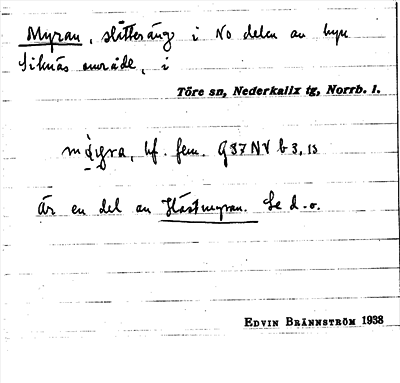 Myran, slåtteräng i NO delen av byn
Siknäs område, i
Töre sn, Nederkalix tg, Norrb. l.
bf. fem. G 37 NV b 3, 13
Är en del av Hästmyran. Se d. o.
EDVIN BRÄNNSTRÖM 1938